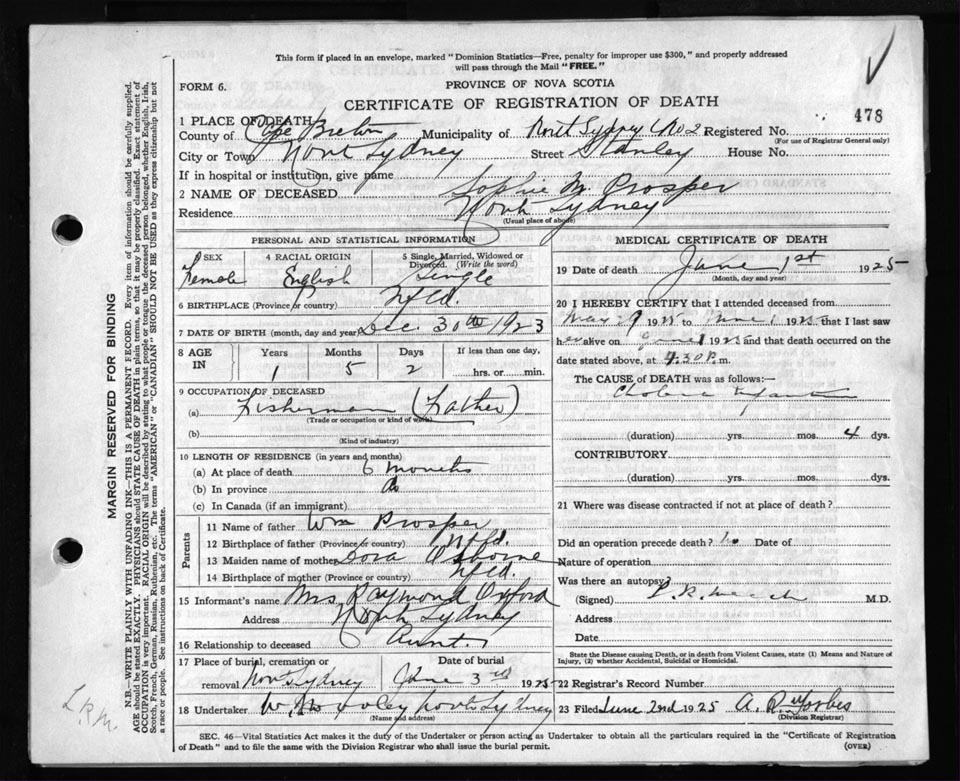 This form if placed in an envelope, marked "Dominion Statistics—Free, penalty for improper use $300," and properly addressed
will pass through the Mail "FREE."
FORM 6.
PROVINCE OF NOVA SCOTIA
CERTIFICATE OF REGISTRATION OF DEATH
478
1 PLACE OF DEATH
County of Cape Breton Municipality of North Sydney No 2 Registered No.
(For use of Registrar General only)
City or Town North Sydney Street Stanley House No.
If in hospital or institution, give name
2 NAME OF DECEASED Sophie M. Prosper
Residence North Sydney
(Usual place of abode)
PERSONAL AND STATISTICAL INFORMATION
3 SEX Female
4 RACIAL ORIGIN English
5 Single, Married, Widowed or Divorced. (Write the word) Single
6 BIRTHPLACE (Province or country) Nfld.
7 DATE OF BIRTH (month, day and year) Dec. 30th 1923
8 AGE IN Years 1 Months 5 Days 2 If less than one day, hrs. or min.
9 OCCUPATION OF DECEASED
(a) Fisherman (Father)
(Trade or occupation or kind of work)
(b)
(Kind of industry)
10 LENGTH OF RESIDENCE (in years and months)
(a) At place of death 6 months
(b) In province do
(c) In Canada (if an immigrant)
Parents
11 Name of father Wm Prosper
12 Birthplace of father (Province or country) Nfld.
13 Maiden name of mother Dora Osborne
14 Birthplace of mother (Province or country) Nfld.
15 Informant's name Mrs Raymond Oxford
Address North Sydney
16 Relationship to deceased Aunt.
17 Place of burial, cremation or removal North Sydney
Date of burial June 3rd 1925
18 Undertaker North Sydney
(Name and address)
MEDICAL CERTIFICATE OF DEATH
19 Date of death June 1st 1925
(Month, day and year)
20 I HEREBY CERTIFY that I attended deceased from
May 29 1925 to June 1 1925 that I last saw
her alive on June 1 1925 and that death occurred on the
date stated above, at 4.30 P.m.
The CAUSE OF DEATH was as follows:—
Cholera Infantum
(duration) yrs. mos. 4 dys.
CONTRIBUTORY
(duration) yrs. mos. dys.
21 Where was disease contracted if not at place of death?
Did an operation precede death? no Date of
Nature of operation
Was there an autopsy?
(Signed) M.D.
Address
Date
State the Disease causing Death, or in death from Violent Causes, state (1) Means and Nature of
Injury, (2) whether Accidental, Suicidal or Homicidal.
22 Registrar's Record Number
23 Filed June 2nd 1925 A. R. Forbes
(Division Registrar)
SEC. 46—Vital Statistics Act makes it the duty of the Undertaker or person acting as Undertaker to obtain all the particulars required in the "Certificate of Registration
of Death" and to file the same with the Division Registrar who shall issue the burial permit.
(OVER)
MARGIN RESERVED FOR BINDING
N.B.—WRITE PLAINLY WITH UNFADING INK—THIS IS A PERMANENT RECORD. Every item of information should be carefully supplied.
AGE should be stated EXACTLY. PHYSICIANS should STATE CAUSE OF DEATH in plain terms, so that it may be properly classified. Exact statement of
OCCUPATION is very important. RACIAL ORIGIN will be described by stating to what people or tongue the deceased person belonged, whether English, Irish,
Scotch, French, German, Russian, Ruthenian, etc. The terms "AMERICAN" or "CANADIAN" SHOULD NOT BE USED as they express citizenship but not
a race or people. See instructions on back of Certificate.